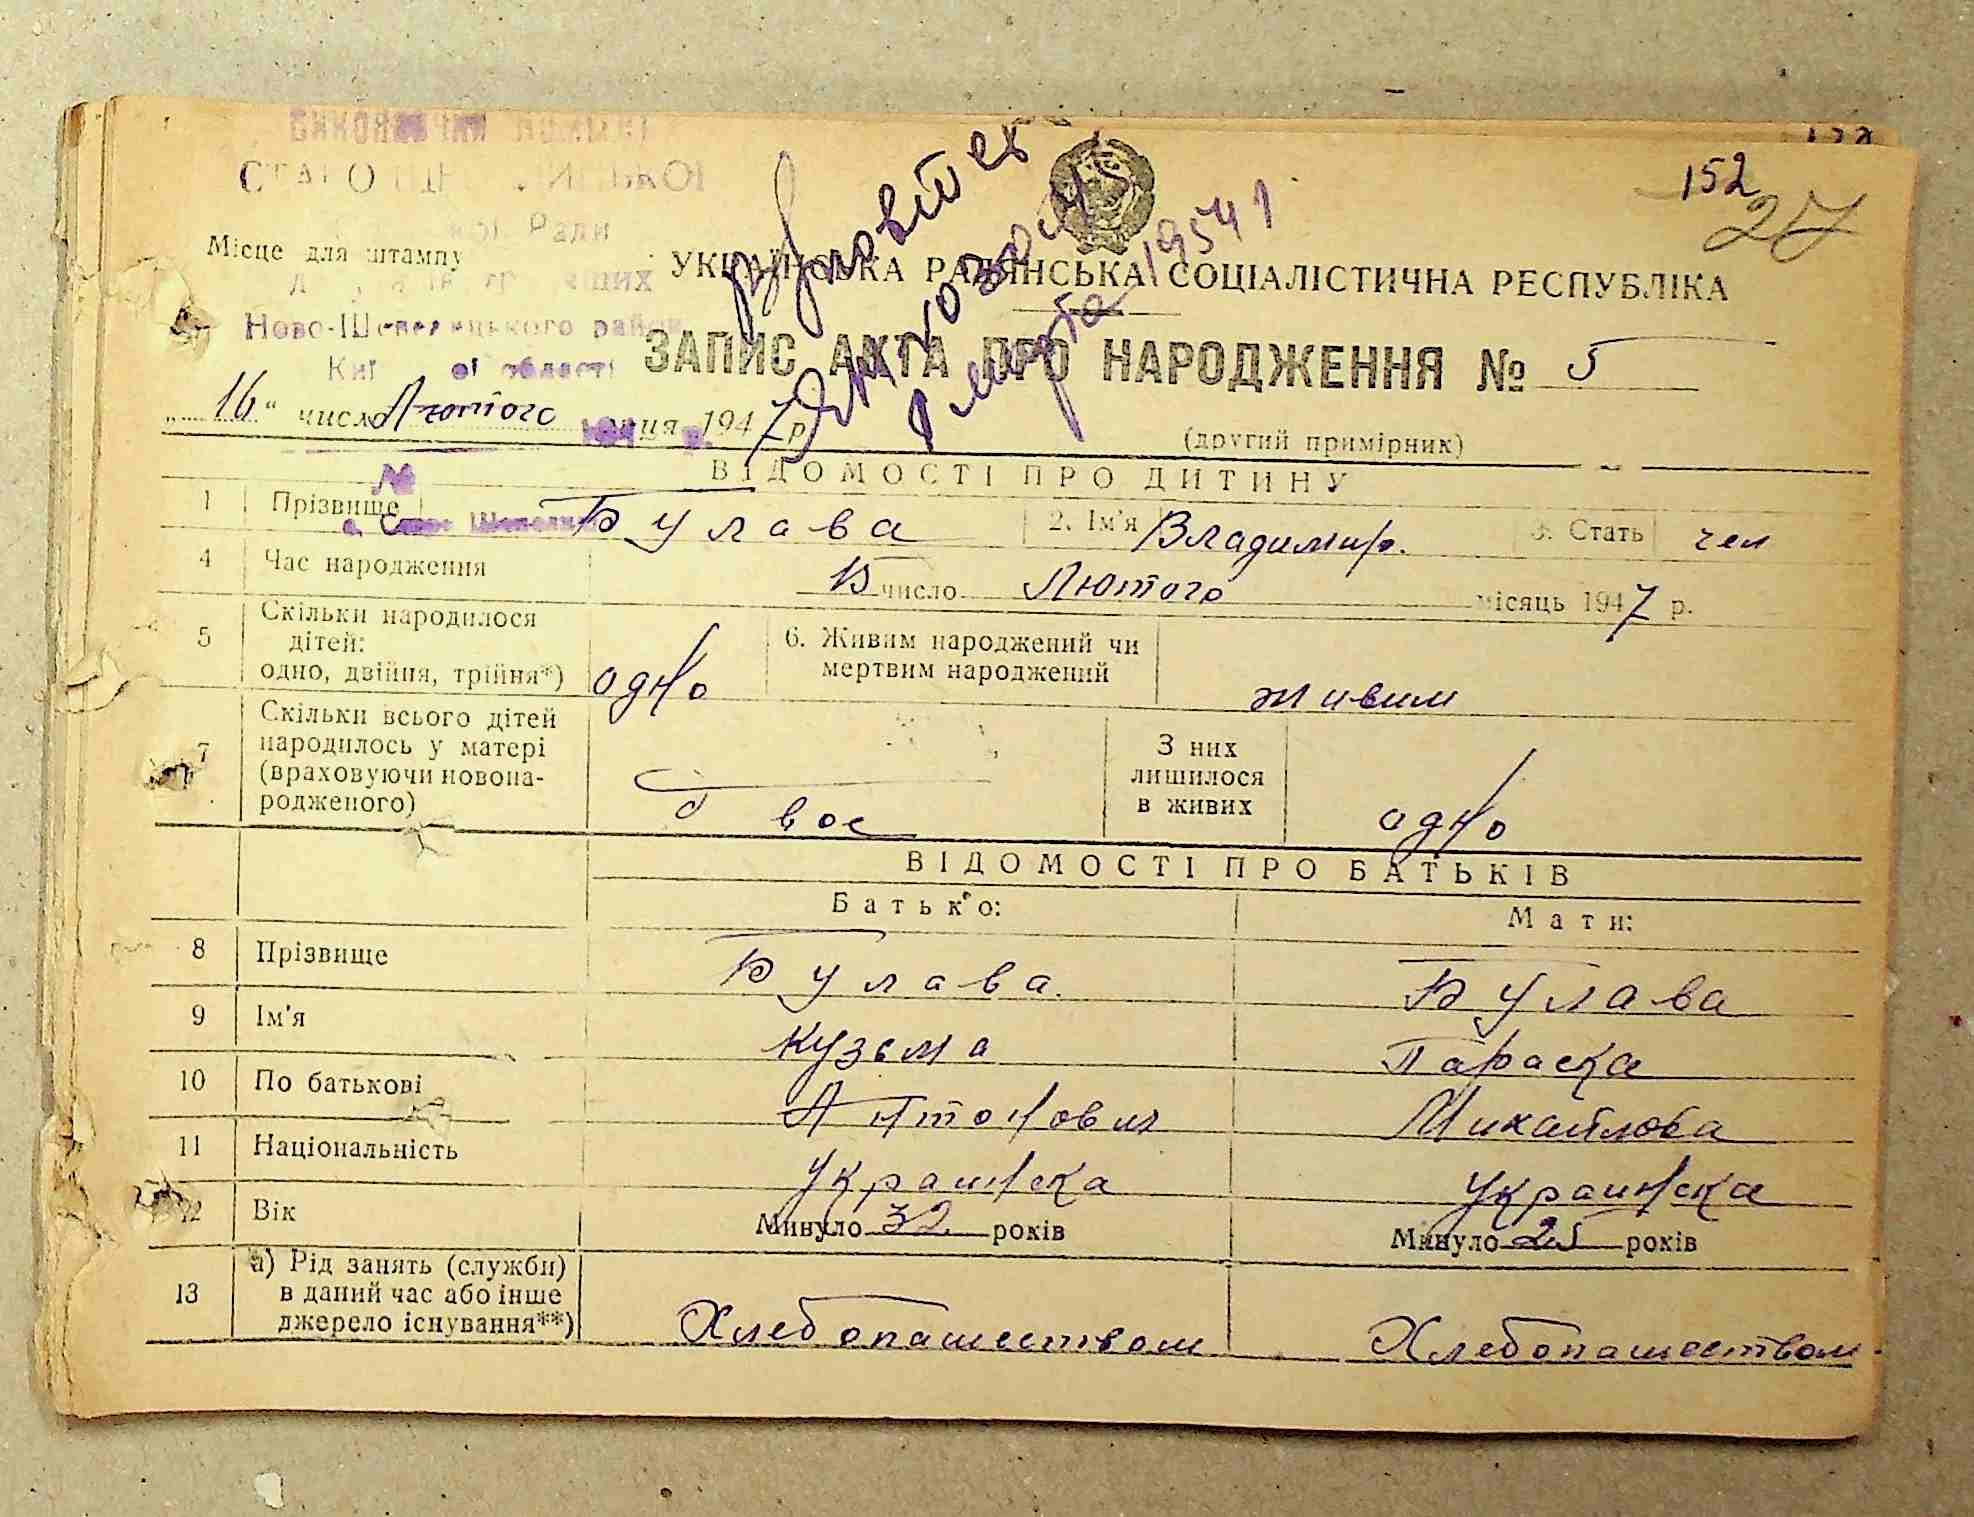 152
27
Місце для штампу
Ново-Шепелицького району
УКРАЇНСЬКА РАДЯНСЬКА СОЦІАЛІСТИЧНА РЕСПУБЛІКА
ЗАПИС АКТА ПРО НАРОДЖЕННЯ № 5
„16“ число Лютого місяця 1947 р.
(другий примірник)
ВІДОМОСТІ ПРО ДИТИНУ
1 Прізвище Булава 2. Ім'я Владимир. 3. Стать чел
4 Час народження 15 число Лютого місяць 1947 р.
5 Скільки народилося
дітей:
одно, двійня, трійня*) одно
6. Живим народжений чи
мертвим народжений живим
7 Скільки всього дітей
народилось у матері
(враховуючи новона-
родженого) Двое
З них
лишилося
в живих одно
ВІДОМОСТІ ПРО БАТЬКІВ
Батько: Мати:
8 Прізвище Булава Булава
9 Ім'я Кузьма Параска
10 По батькові Антонович Михайлова
11 Національність Украинска Украинска
12 Вік Минуло 32 років Минуло 25 років
13 а) Рід занять (служби)
в даний час або інше
джерело існування**) Хлебопашеством Хлебопашеством